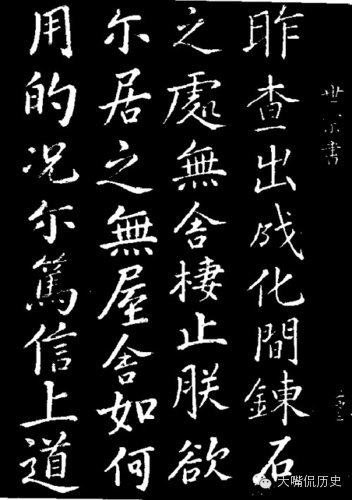 世宗書
昨查出成化間鍊石
之處無舍棲止朕欲
尓居之無屋舍如何
用的况尓篤信上道
天嘴侃历史